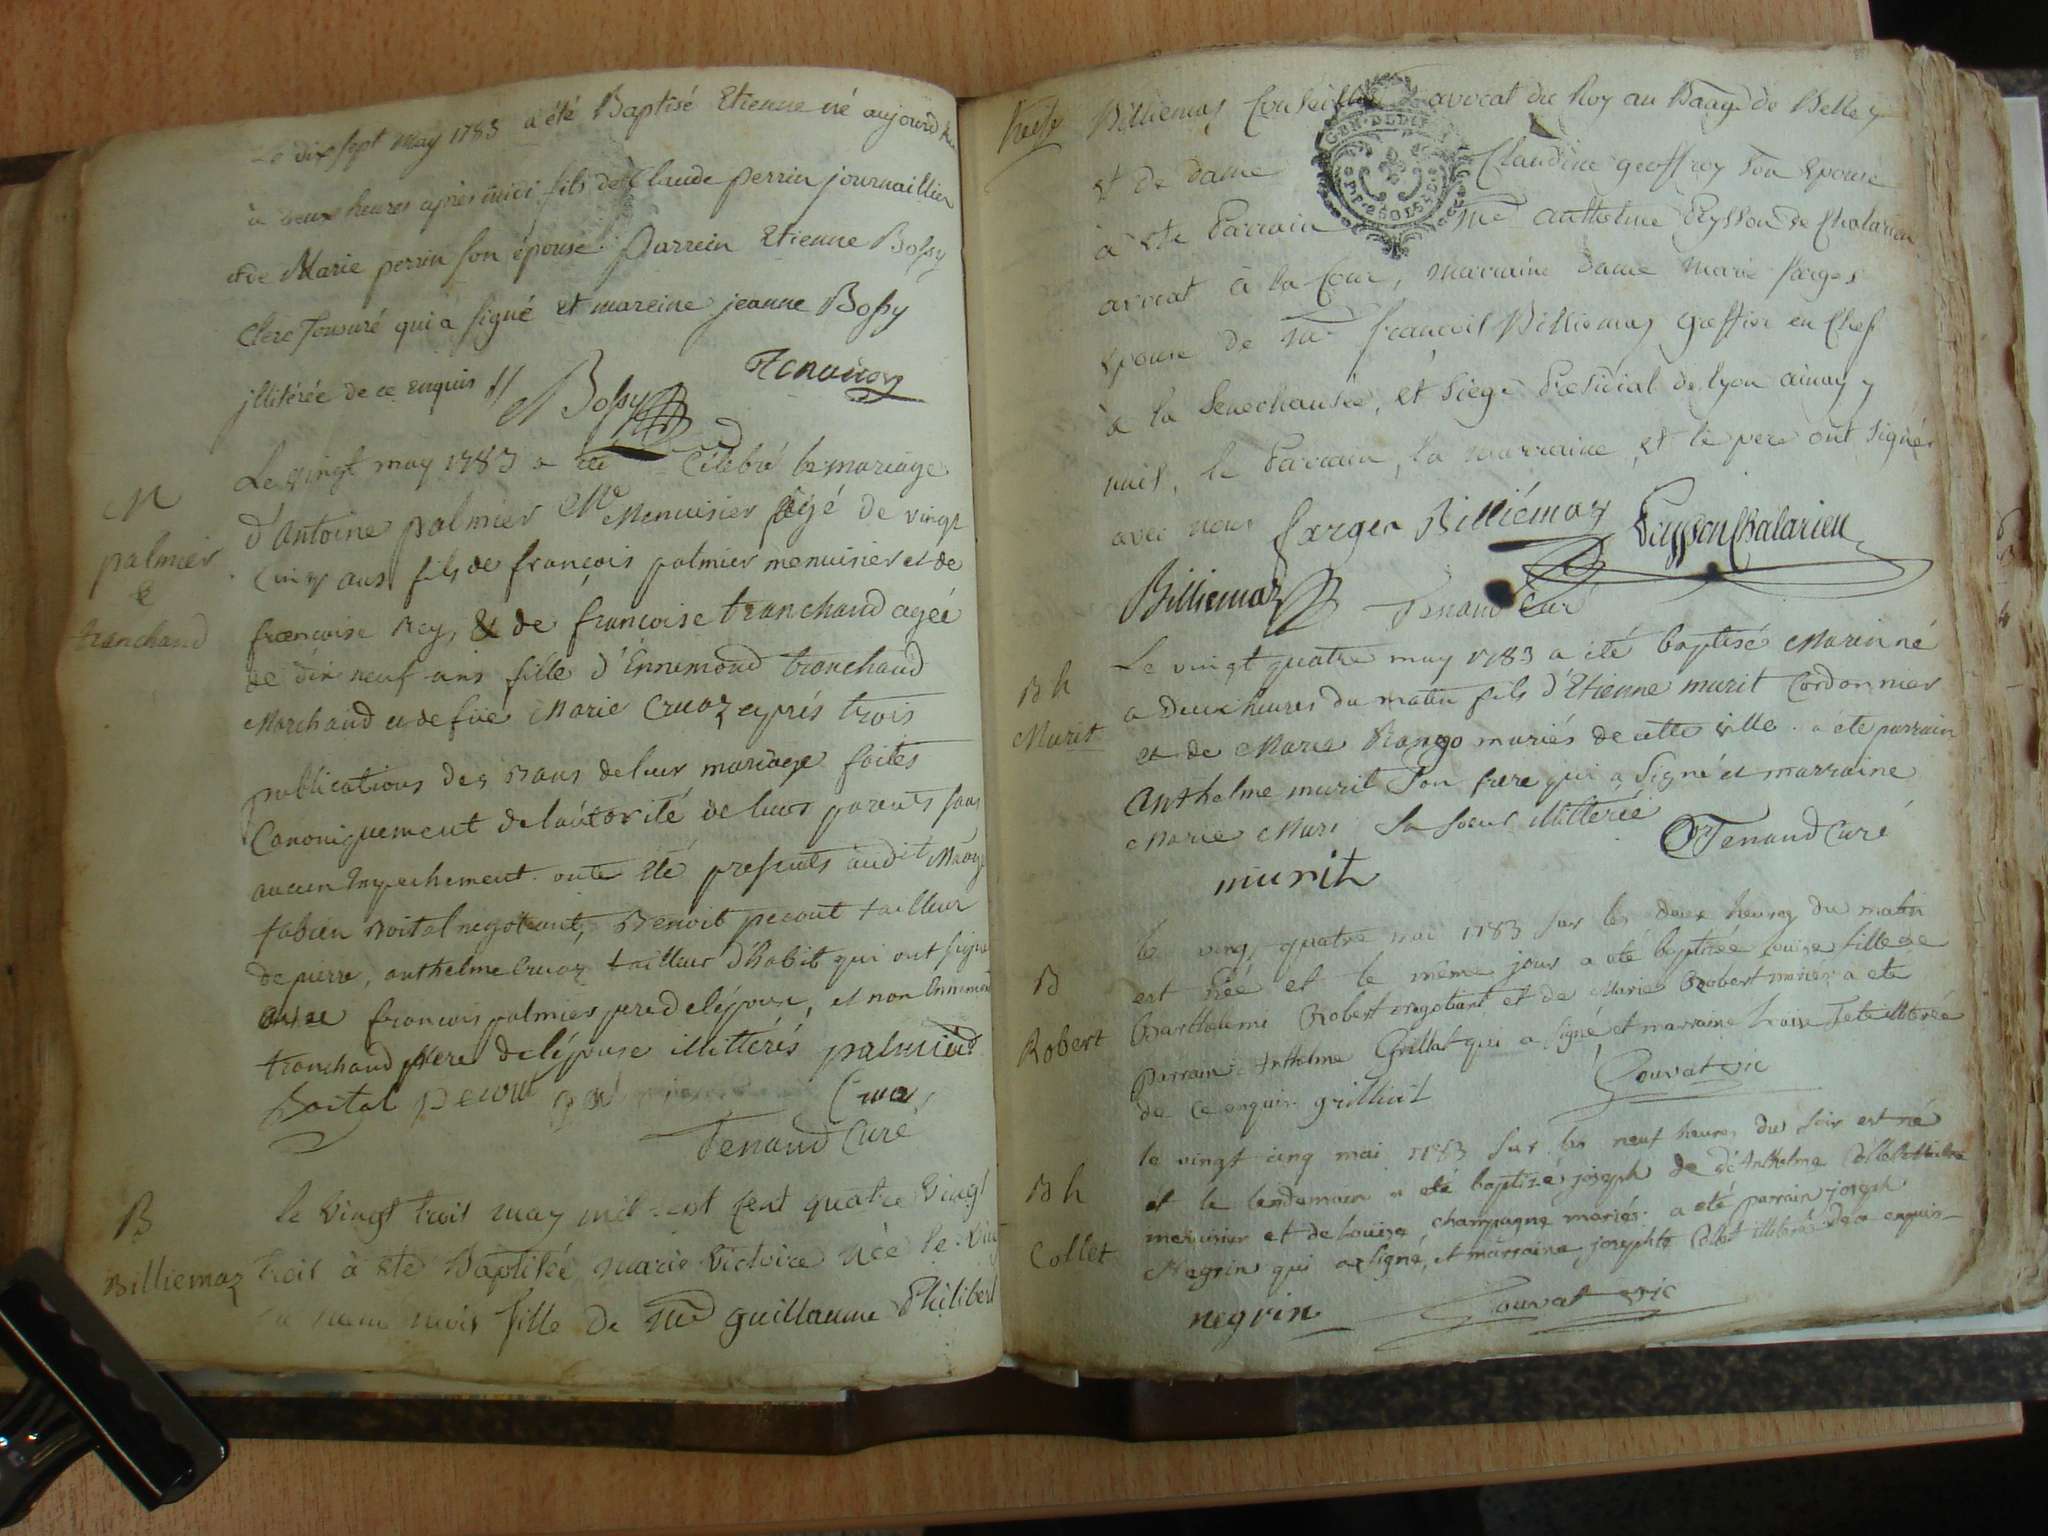 Le dix sept may 1783 a été Baptisé Etienne né aujourd'hui
à deux heures après midi fils de Claude perrin journaillier
et de Marie perrin son épouse. Parrein Etienne Bossy
Clerc Tonsuré qui a signé et mareine jeanne Bossy
jllitérée de ce enquis //
Bossy Tenand
Le vingt may 1783 a été Célébré le mariage
M
palmier
&
tranchand
d'Antoine palmier Me Menuisier agé de vingt
Cinq ans fils de françois palmier menuisier et de
françoise Rey, & de françoise tranchand agée
de dix neuf ans fille d'Ennemond tranchand
Marchand et de füe Marie Cruaz après trois
publications des Bans de leur mariage faites
Canoniquement de l'autorité de leurs parents sans
aucun Empechement. onte été presents audit
fabien Boital negotiant, Benoit pecout tailleur
de pierre, anthelme Cruaz tailleur d'Habit qui ont signé
françois palmier pere de l'époux, et non Ennemond
tranchand pere de l'épouse illittérés palmier
Boital pecout Cruaz
Tenand Curé
B
Billiemaz
le vingt trois may mil sept cent quatre vingt
trois à été Baptisée marie victoire née le
du meme mois fille de me guillaume Philibert
Billiemaz Conseiller avocat du Roy au Baage de Belley
et de dame Claudine geoffroy son epouse
à été Parrain me anthelme Peysson de Chalarieu
avocat à la Cour, marraine dame marie farges
epouse de me françois Billiemaz greffier en Chef
à la Senechaussée, et siege Presidial de lyon
le Parrain, la marraine, et le pere ont signé
avec nous farges Billiémaz Peysson Chalarieu
Billiemaz Tenand Curé
B h
Murit
Le vingt quatre may 1783 a été baptisé Marin né
a deux heures du matin fils d'Etienne murit Cordonnier
et de Marie Rango mariés de cette ville. a été parrain
Anthelme murit son frere qui a signé et marraine
Marie Muri sa soeur illittérée
murit Tenand Curé
B
Robert
le vingt quatre mai 1783 sur les deux heures du matin
est née et le même jour a été baptisée louise fille de
Barthelemi Robert negotiant et de Marie Robert mariés a été
parrain Anthelme Grillat qui a signé, et marraine illiterée
de ce enquis. grilliat Gouvat vic
B h
Collet
le vingt cinq mai 1783 sur les neuf heures du soir est né
et le lendemain a été baptizé joseph de d'Anthelme Collet
menuisier et de Louise champagne mariés. a été parrain joseph
Negrin qui a signé, et marraine josephte Collet illiterée de ce enquis
negrin Gouvat vic